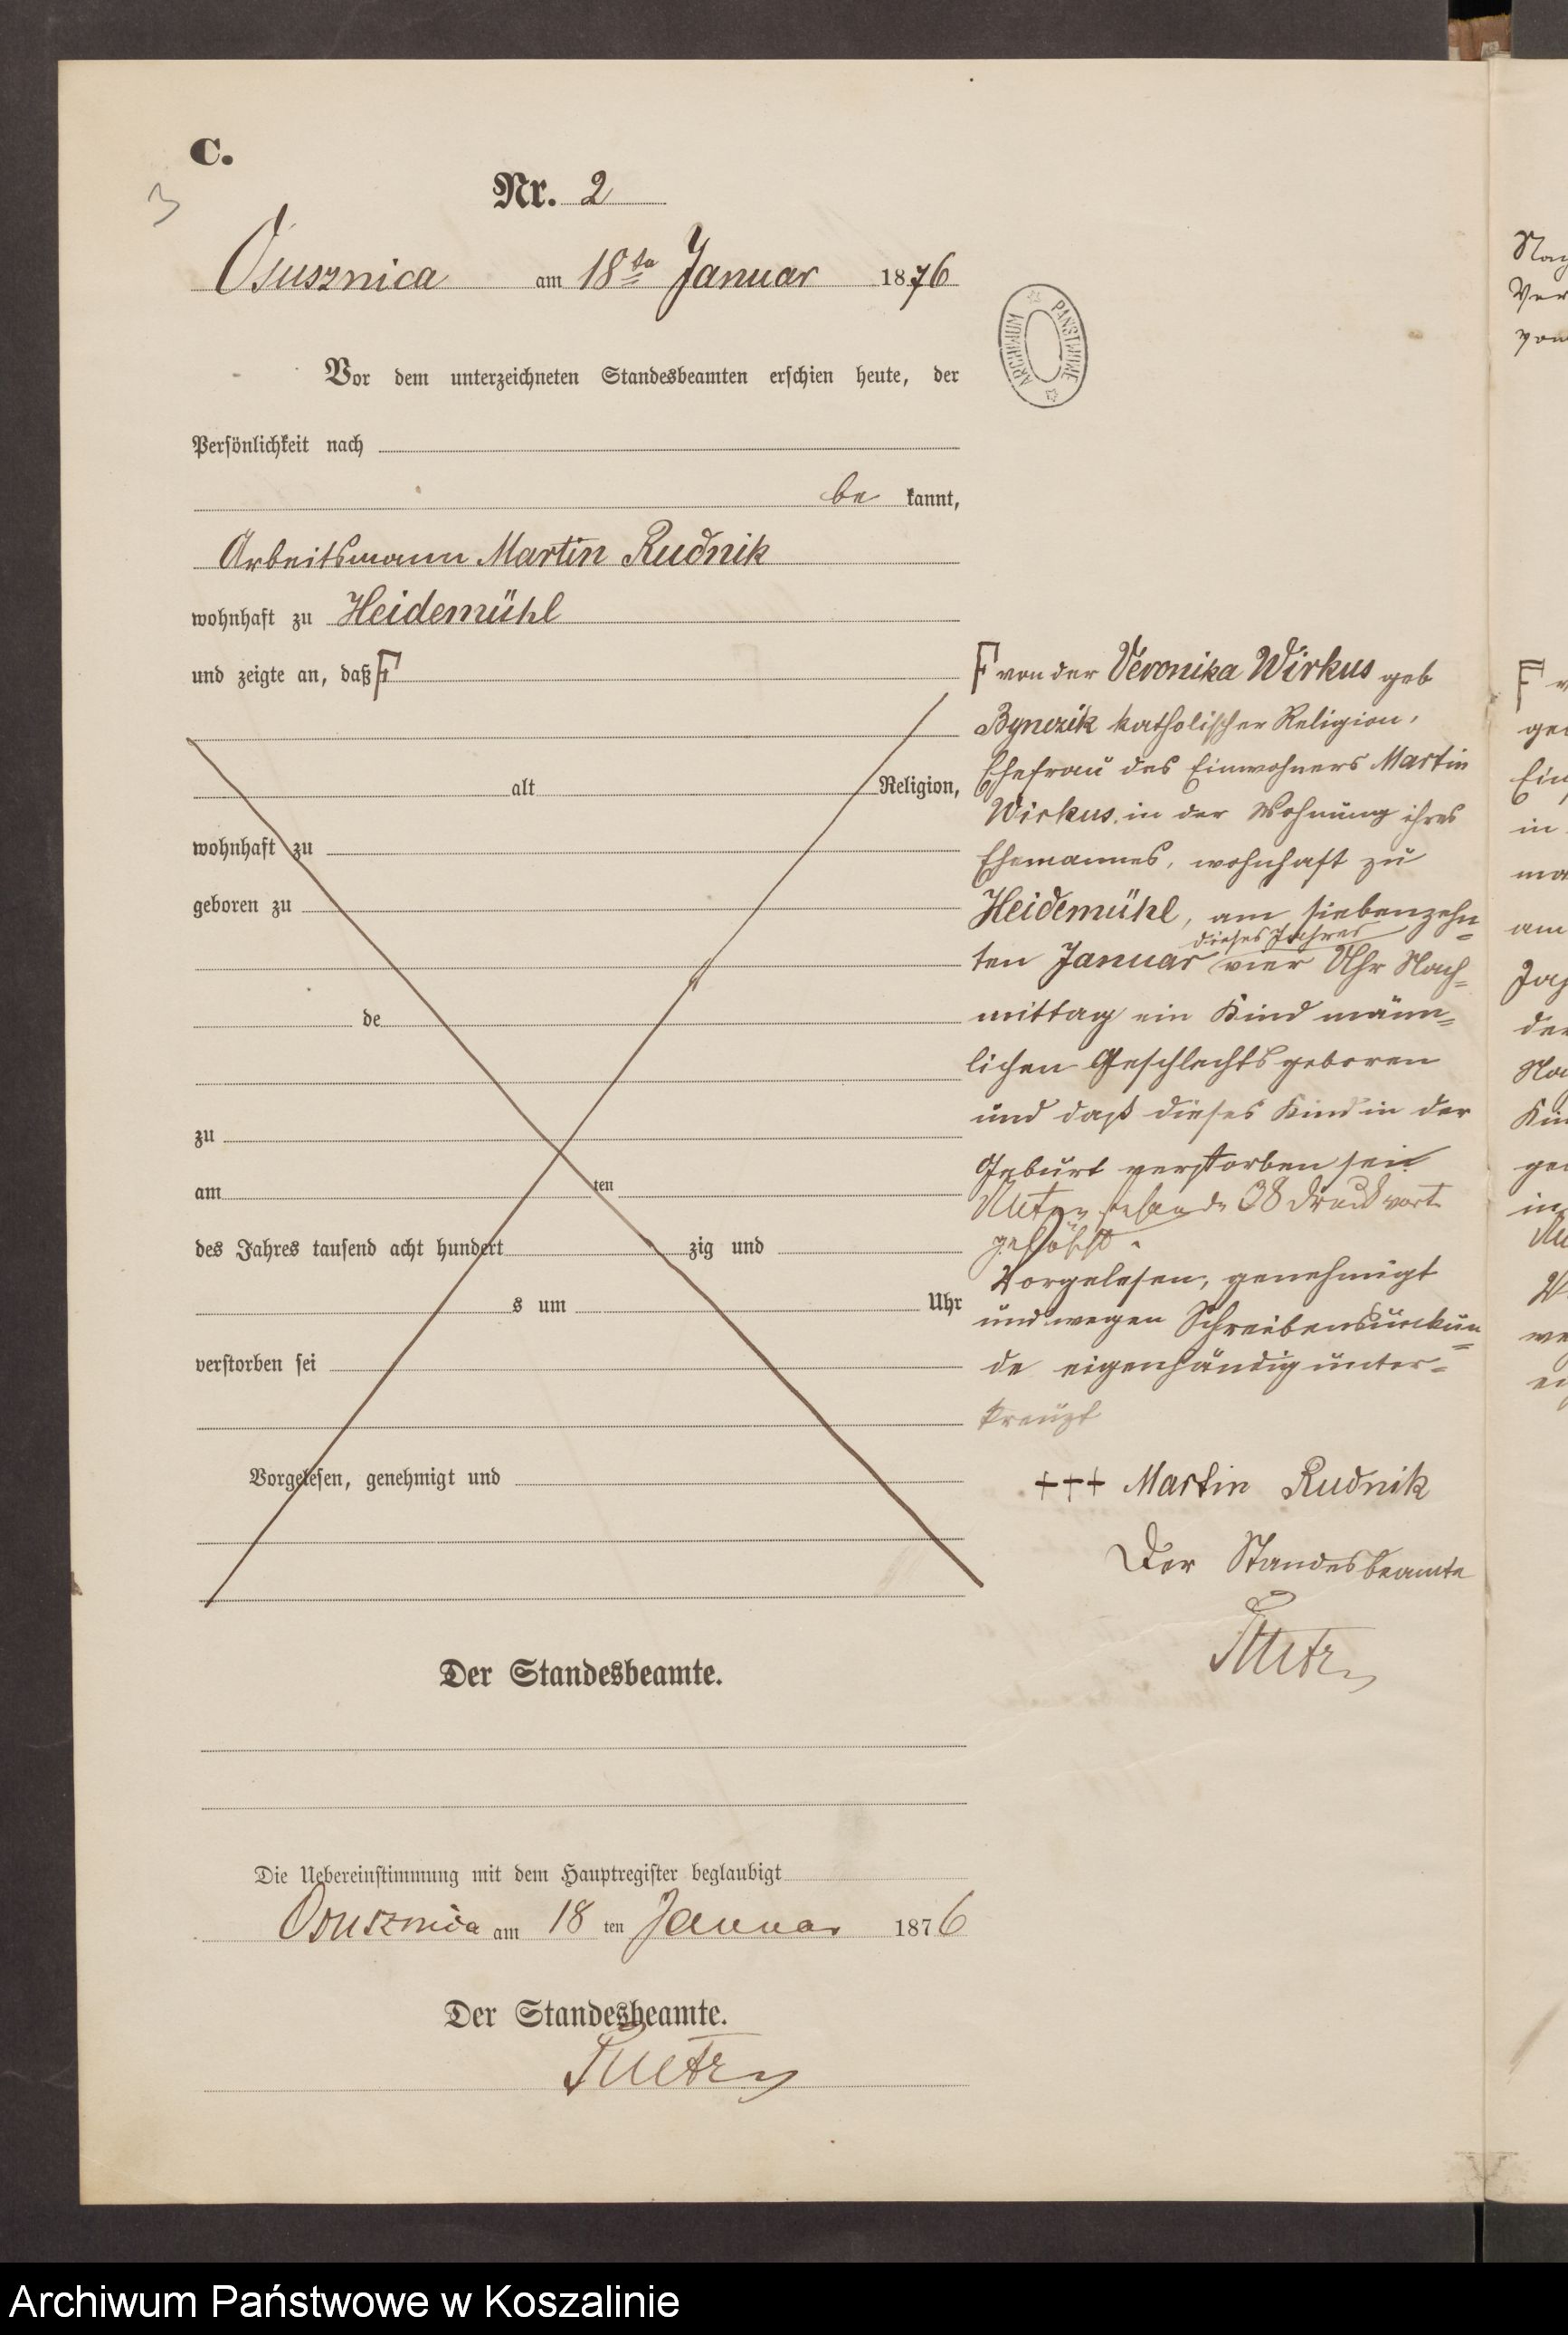 C.
3
Nr. 2
Osusznica am 18te Januar 1876
ARCHIWUM PAŃSTWOWE
Vor dem unterzeichneten Standesbeamten erschien heute, der
Persönlichkeit nach
be kannt,
Arbeitsmann Martin Rudnik
wohnhaft zu Heidemühl
und zeigte an, daß
alt Religion,
wohnhaft zu
geboren zu
de
zu
am ten
des Jahres tausend acht hundert zig und
s um Uhr
verstorben sei
Vorgelesen, genehmigt und
Der Standesbeamte.
von der Veronika Wirkus geb
katholischer Religion,
Ehefrau des Einwohners Martin
Wirkus in der Wohnung ihres
Ehemannes, wohnhaft zu
Heidemühl, am siebenzehn=
dieses Jahres
ten Januar vier Uhr Nach=
mittag ein Kind männ=
lichen Geschlechts geboren
und daß dieses Kind in der
Geburt verstorben sei
38 Druckworte
gelöscht.
Vorgelesen, genehmigt
und wegen Schreibensunkun=
de eigenhändig unter=
kreuzt
+++ Martin Rudnik
Der Standesbeamte
Die Uebereinstimmung mit dem Hauptregister beglaubigt
Osusznica am 18 ten Januar 1876
Der Standesbeamte.
Archiwum Państwowe w Koszalinie